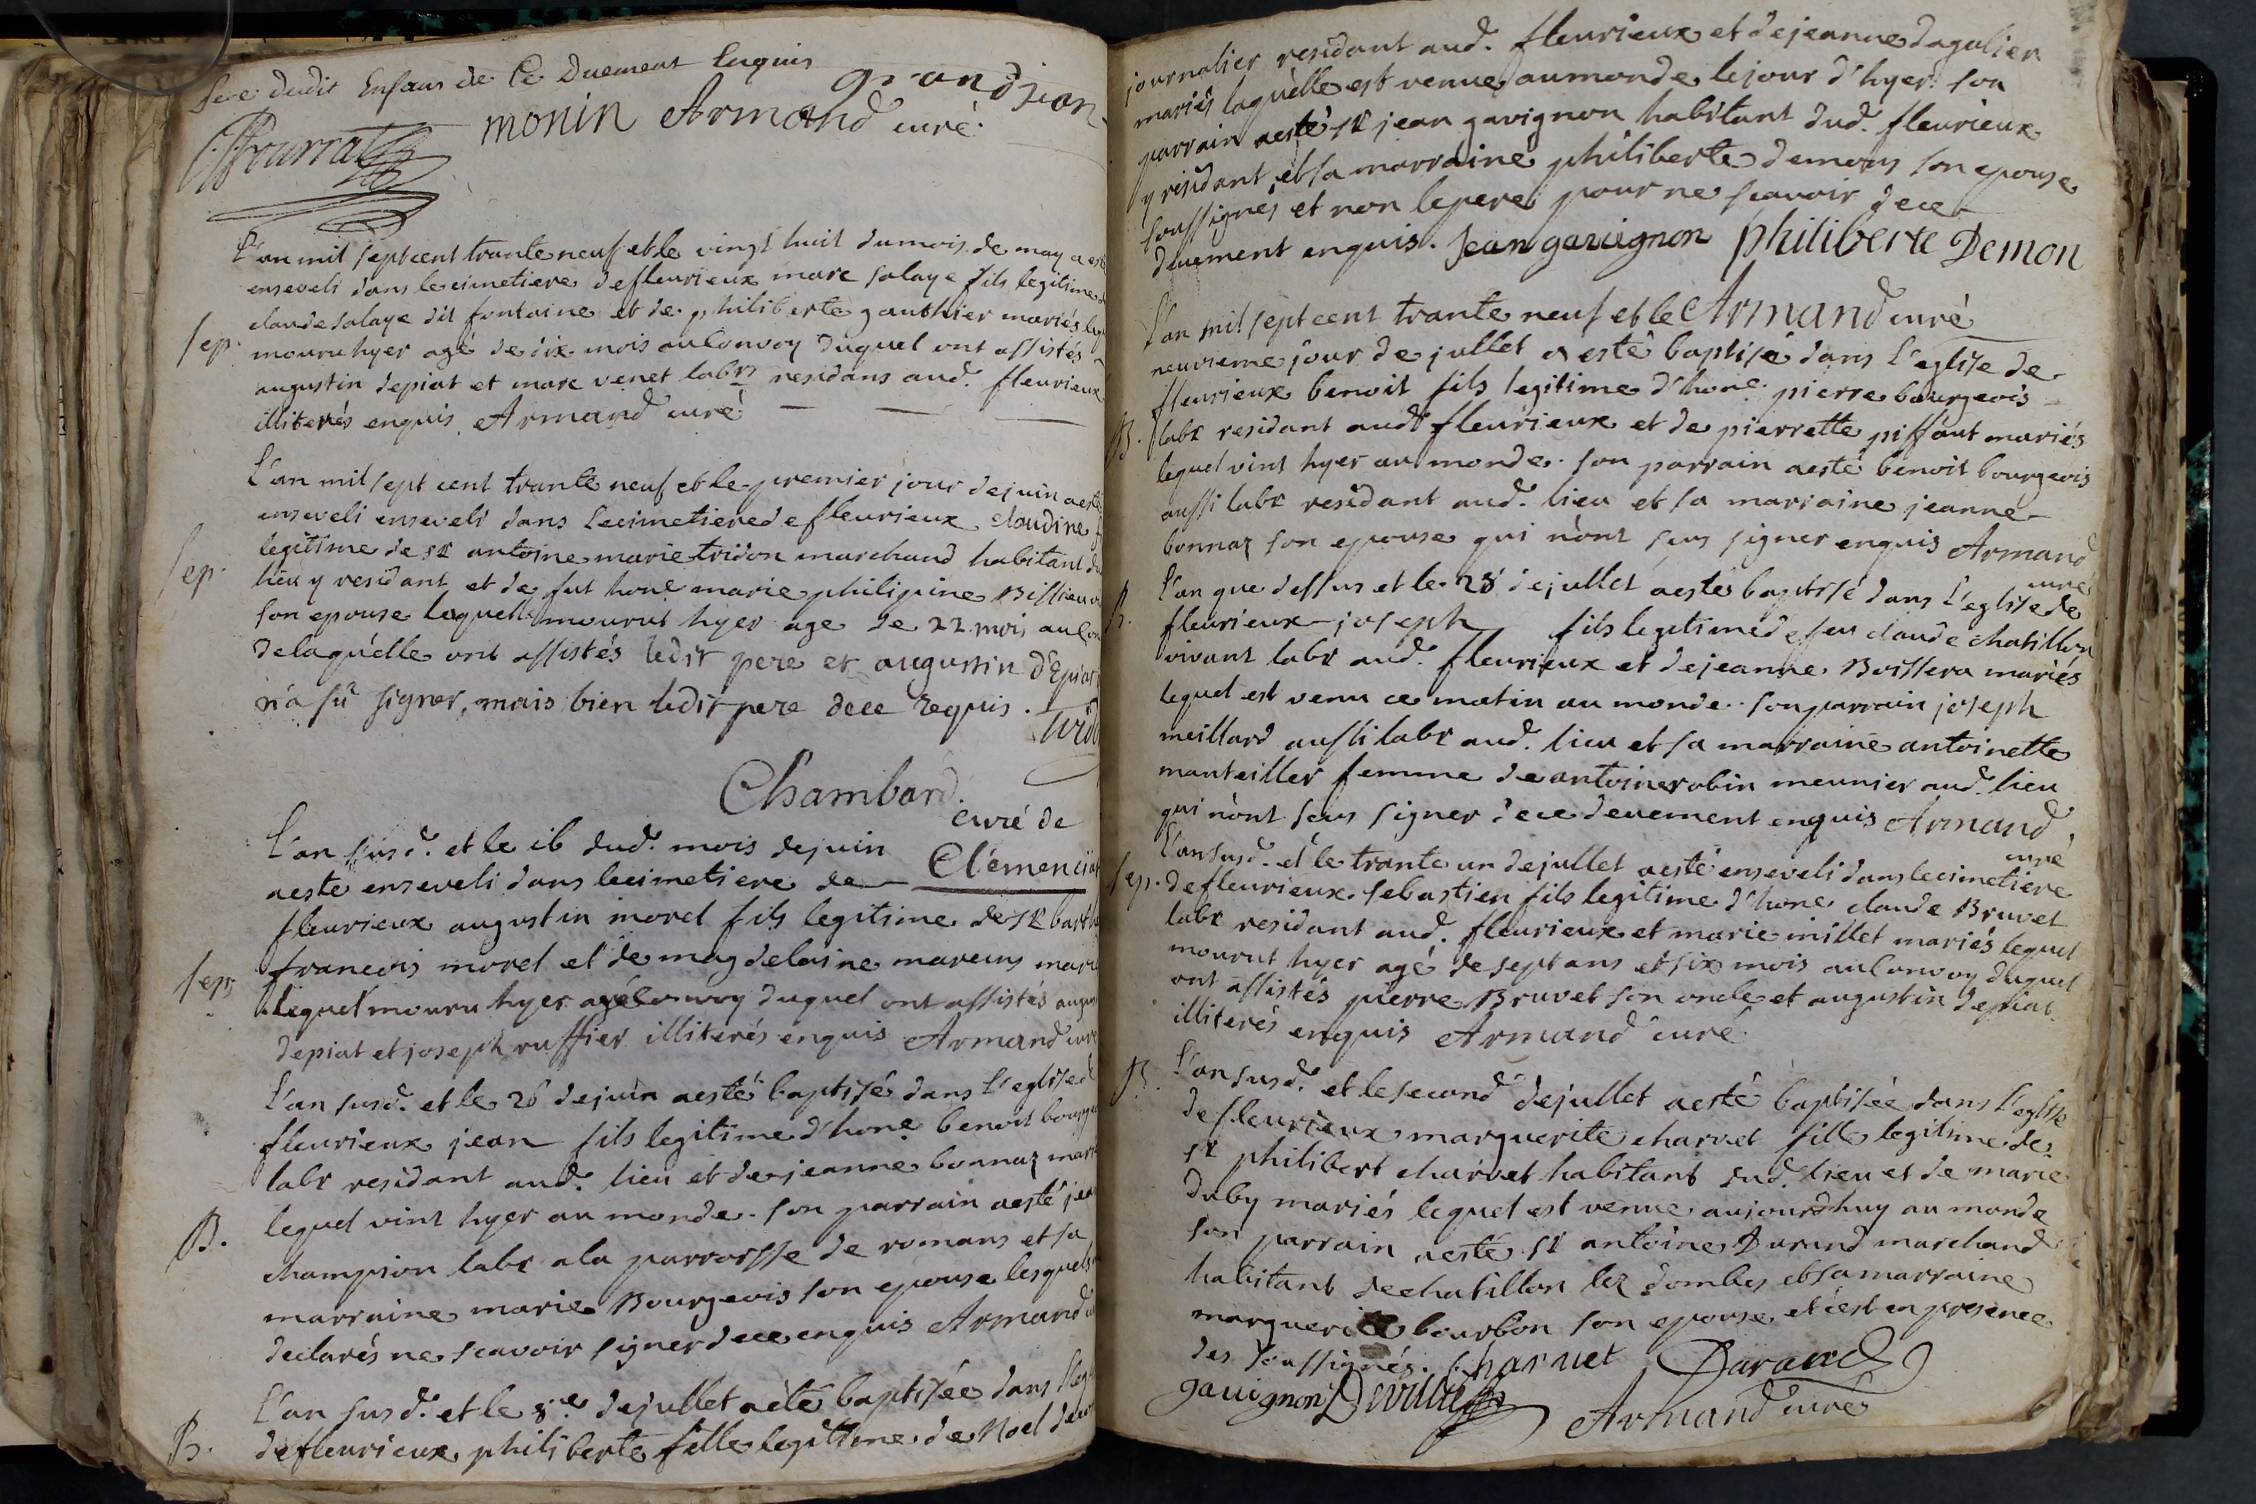 pere dudit Enfans de Ce Duement Enquis
grandjean
monin Armand curé.
Pourrat
L'an mil sept cent trante neuf et le vingt huit du mois de may a esté
enseveli dans le cimetiere de fleurieux marc salaye fils legitime de
claude salaye dit fontaine et de philiberte gauthier mariés
sep. mouru hyer agé de dix mois au Convoy duquel ont assistés
augustin depiat et marc venet labrs residans aud. fleurieux
illiterés enquis Armand curé
L'an mil sept cent trante neuf et le premier jour de juin a esté
enseveli enseveli dans le cimetiere de fleurieux claudine
sep. legitime de sr antoine marie tridon marchand habitant
lieu y residant et de fut hone marie philipine
son epouse laquelle mourut hyer age de 22 mois au
de laquelle ont assistés ledit pere et augustin d'Epiat
n'a sû signer, mais bien ledit pere de ce requis.
Chambard.
curé de
Clemenciat
L'an susd. et le 16 dud. mois de juin
a esté enseveli dans le cimetiere de
fleurieux augustin morel fils legitime de sr
sep. francois morel et de magdelaine
lequel mouru hyer agé Convoy duquel ont assistés
depiat et joseph ruffier illiterés enquis Armand curé
L'an susd. et le 26 de juin a esté baptisé dans l'eglise de
fleurieux jean fils legitime d'hone benoit
labr residant aud. lieu et de jeanne bonnaz
B. lequel vint hyer au monde. son parrain a esté jean
champion labr a la parroisse de romans et sa
marraine marie Bourgeois son epouse lesquels
declarés ne scavoir signer de ce enquis Armand
L'an susd. et le 8.e de jullet a été baptisée dans
B. de fleurieux philiberte fille legitime de Noel
journalier residant aud. fleurieux et de jeanne dagalier
mariés laquelle est venue au monde le jour d'hyer. son
parrain a esté sr jean gavignon habitant dud. fleurieux
y residant, et sa marraine philiberte demons son epouse
soussignés et non le pere pour ne scavoir de ce
deuement enquis. Jean gavignon philiberte Demon
Armand curé
L'an mil sept cent trante neuf et le
neuvieme jour de jullet a esté baptisé dans l'eglise de
fleurieux benoit fils legitime d'hone. pierre bourgeois
B. labr residant audt fleurieux et de pierrette piffaut mariés
lequel vint hyer au monde. son parrain a esté benoit bourgeois
aussi labr residant aud. lieu et sa marraine jeanne
bonnaz son epouse qui n'ont seus signer enquis Armand
curé
B. L'an que dessus et le 28 de jullet a esté baptisé dans l'eglise de
fleurieux joseph fils legitime de feu claude chatillon
vivant labr aud. fleurieux et de jeanne Boissera mariés
lequel est venu ce matin au monde. son parrain joseph
meillard aussi labr aud. lieu et sa marraine antoinette
manteiller femme de antoine robin meunier aud. lieu
qui n'ont seus signer de ce deuement enquis Armand
curé
sep. L'an susd. et le trante un de jullet a esté enseveli dans le cimetiere
de fleurieux. sebastien fils legitime d'hone claude Bruvet
labr residant aud. fleurieux et marie millet mariés lequel
mourut hyer agé de sept ans et six mois au Convoy duquel
ont assistés pierre Bruvet son oncle et augustin depiat
illiterés enquis Armand curé
B. L'an susd. et le second de jullet a esté baptisée dans l'eglise
de fleurieux marguerite charvet fille legitime de
sr philibert charvet habitant dud. lieu et de marie
duby mariés lequel est venue aujourdhuy au monde
son parrain a esté sr antoine Durand marchand
habitant de chatillon lez dombes et sa marraine
marguerite bourbon son epouse, et c'est en presence
des soussignés. Charvet Durand
gavignon Armand curé